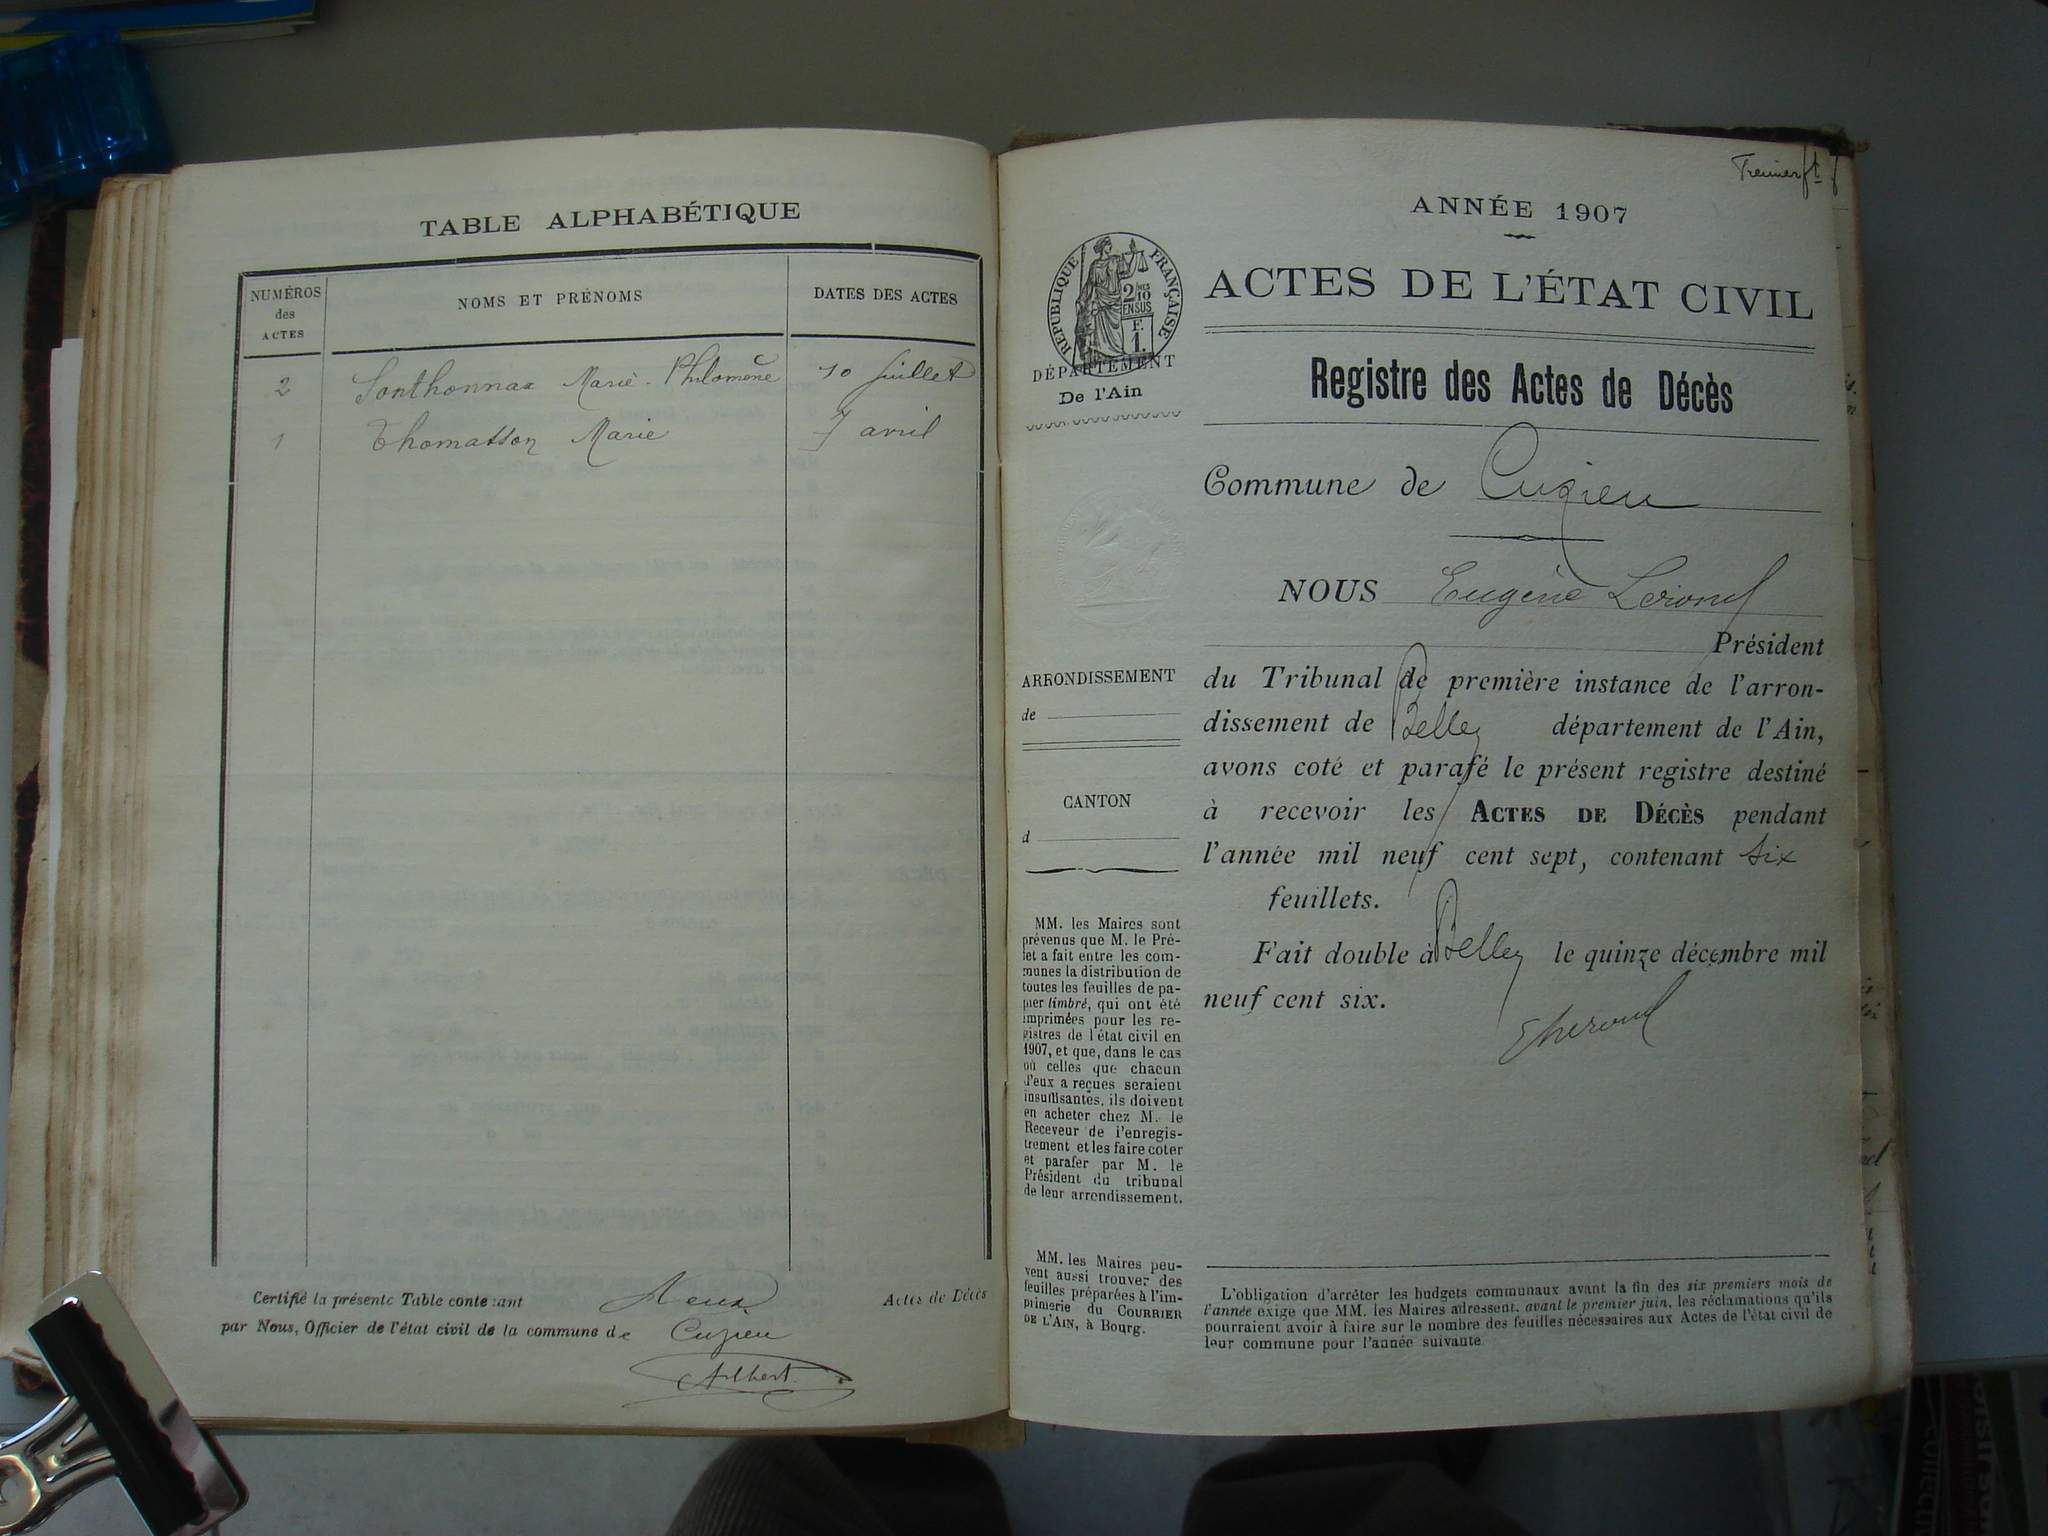 TABLE ALPHABÉTIQUE
NUMÉROS des ACTES
NOMS ET PRÉNOMS
DATES DES ACTES
2 Sonthonnax Marie-Philomène 10 Juillet
1 Thomasson Marie 7 avril
Certifié la présente Table contenant deux Actes de Décès
par Nous, Officier de l'état civil de la commune de Cuzieu
Albert
Premier ft
ANNÉE 1907
RÉPUBLIQUE FRANÇAISE
2/10 EN SUS
F. 1.
ACTES DE L'ÉTAT CIVIL
DÉPARTEMENT
De l'Ain
Registre des Actes de Décès
Commune de Cuzieu
NOUS Eugène
Président
du Tribunal de première instance de l'arron-
dissement de Belley département de l'Ain,
avons coté et parafé le présent registre destiné
à recevoir les ACTES DE DÉCÈS pendant
l'année mil neuf cent sept, contenant six
feuillets.
Fait double à Belley le quinze décembre mil
neuf cent six.
ARRONDISSEMENT
de
CANTON
d
MM. les Maires sont
prévenus que M. le Pré-
fet a fait entre les com-
munes la distribution de
toutes les feuilles de pa-
pier timbré, qui ont été
imprimées pour les re-
gistres de l'état civil en
1907, et que, dans le cas
où celles que chacun
d'eux a reçues seraient
insuffisantes, ils doivent
en acheter chez M. le
Receveur de l'enregis-
trement et les faire coter
et parafer par M. le
Président du tribunal
de leur arrondissement.
MM. les Maires peu-
vent aussi trouver des
feuilles préparées à l'im-
primerie du COURRIER
DE L'AIN, à Bourg.
L'obligation d'arrêter les budgets communaux avant la fin des six premiers mois de
l'année exige que MM. les Maires adressent, avant le premier juin, les réclamations qu'ils
pourraient avoir à faire sur le nombre des feuilles nécessaires aux Actes de l'état civil de
leur commune pour l'année suivante